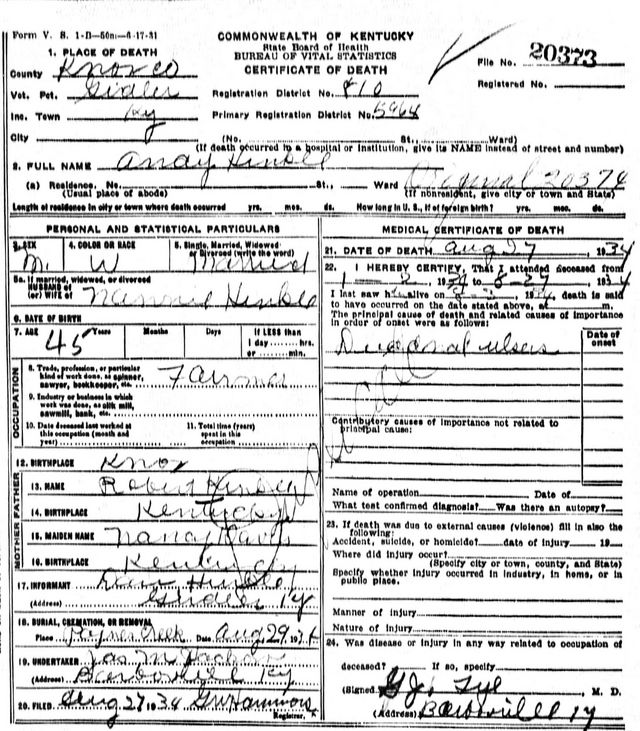 Form V. S. 1-D-50m-6-17-31
COMMONWEALTH OF KENTUCKY
State Board of Health
BUREAU OF VITAL STATISTICS
CERTIFICATE OF DEATH
File No. 20373
Registered No.
1. PLACE OF DEATH
County Knox co
Vot. Pct.
Registration District No. 410
Inc. Town Ky
Primary Registration District No. 5964
City (No. St., Ward)
(If death occurred in a hospital or institution, give its NAME instead of street and number)
2. FULL NAME Andy
(a) Residence. No. St., Ward 20374
(Usual place of abode) (If nonresident, give city or town and State)
Length of residence in city or town where death occurred yrs. mos. ds. How long in U. S., if of foreign birth? yrs. mos. ds.
PERSONAL AND STATISTICAL PARTICULARS
3. SEX 4. COLOR OR RACE 5. Single, Married, Widowed or Divorced (write the word)
M. W Married
5a. If married, widowed, or divorced
HUSBAND of
(or) WIFE of
6. DATE OF BIRTH
7. AGE 45 Years Months Days If LESS than
1 day hrs.
or min.
OCCUPATION
8. Trade, profession, or particular
kind of work done, as spinner,
sawyer, bookkeeper, etc. Farmer
9. Industry or business in which
work was done, as silk mill,
sawmill, bank, etc.
10. Date deceased last worked at
this occupation (month and
year)
11. Total time (years)
spent in this
occupation
12. BIRTHPLACE Knox
FATHER
13. NAME Robert
14. BIRTHPLACE Kentucky
MOTHER
15. MAIDEN NAME Nancy Davis
16. BIRTHPLACE Kentucky
17. INFORMANT
(Address) Ky
18. BURIAL, CREMATION, OR REMOVAL
Place Creek Date Aug 29 1934
19. UNDERTAKER
(Address) Barbourville Ky
20. FILED Aug 27 1934 GW Hammons
Registrar.
MEDICAL CERTIFICATE OF DEATH
21. DATE OF DEATH Aug 27, 1934
22. I HEREBY CERTIFY, That I attended deceased from
to 8-27, 1934
I last saw h alive on death is said
to have occurred on the date stated above, at m.
The principal cause of death and related causes of importance
in order of onset were as follows:
Date of
onset
Duodenal ulsers
Contributory causes of importance not related to
principal cause:
Name of operation Date of
What test confirmed diagnosis? Was there an autopsy?
23. If death was due to external causes (violence) fill in also the
following:
Accident, suicide, or homicide? date of injury 19
Where did injury occur?
(Specify city or town, county, and State)
Specify whether injury occurred in industry, in home, or in
public place.
Manner of injury
Nature of injury
24. Was disease or injury in any way related to occupation of
deceased? If so, specify
(Signed) M. D.
(Address) Barbourville Ky